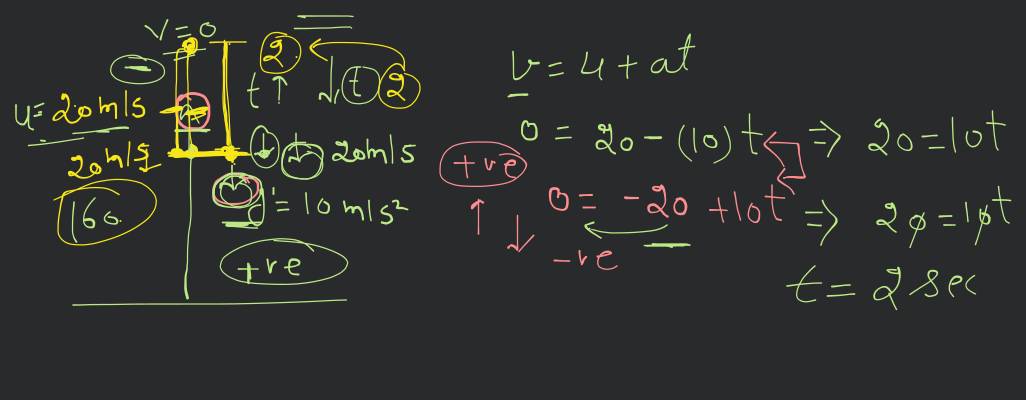 v = 0
−
2
t ↑ ↓ t 2
u = 20 m/s
20 m/s
↓ ↓ 20 m/s
160
g = 10 m/s²
+ve
v = u + at
0 = 20 - (10) t ⇒ 20 = 10t
+ve
↑ ↓
0 = -20 + 10t ⇒ 20 = 10t
-ve
t = 2 sec